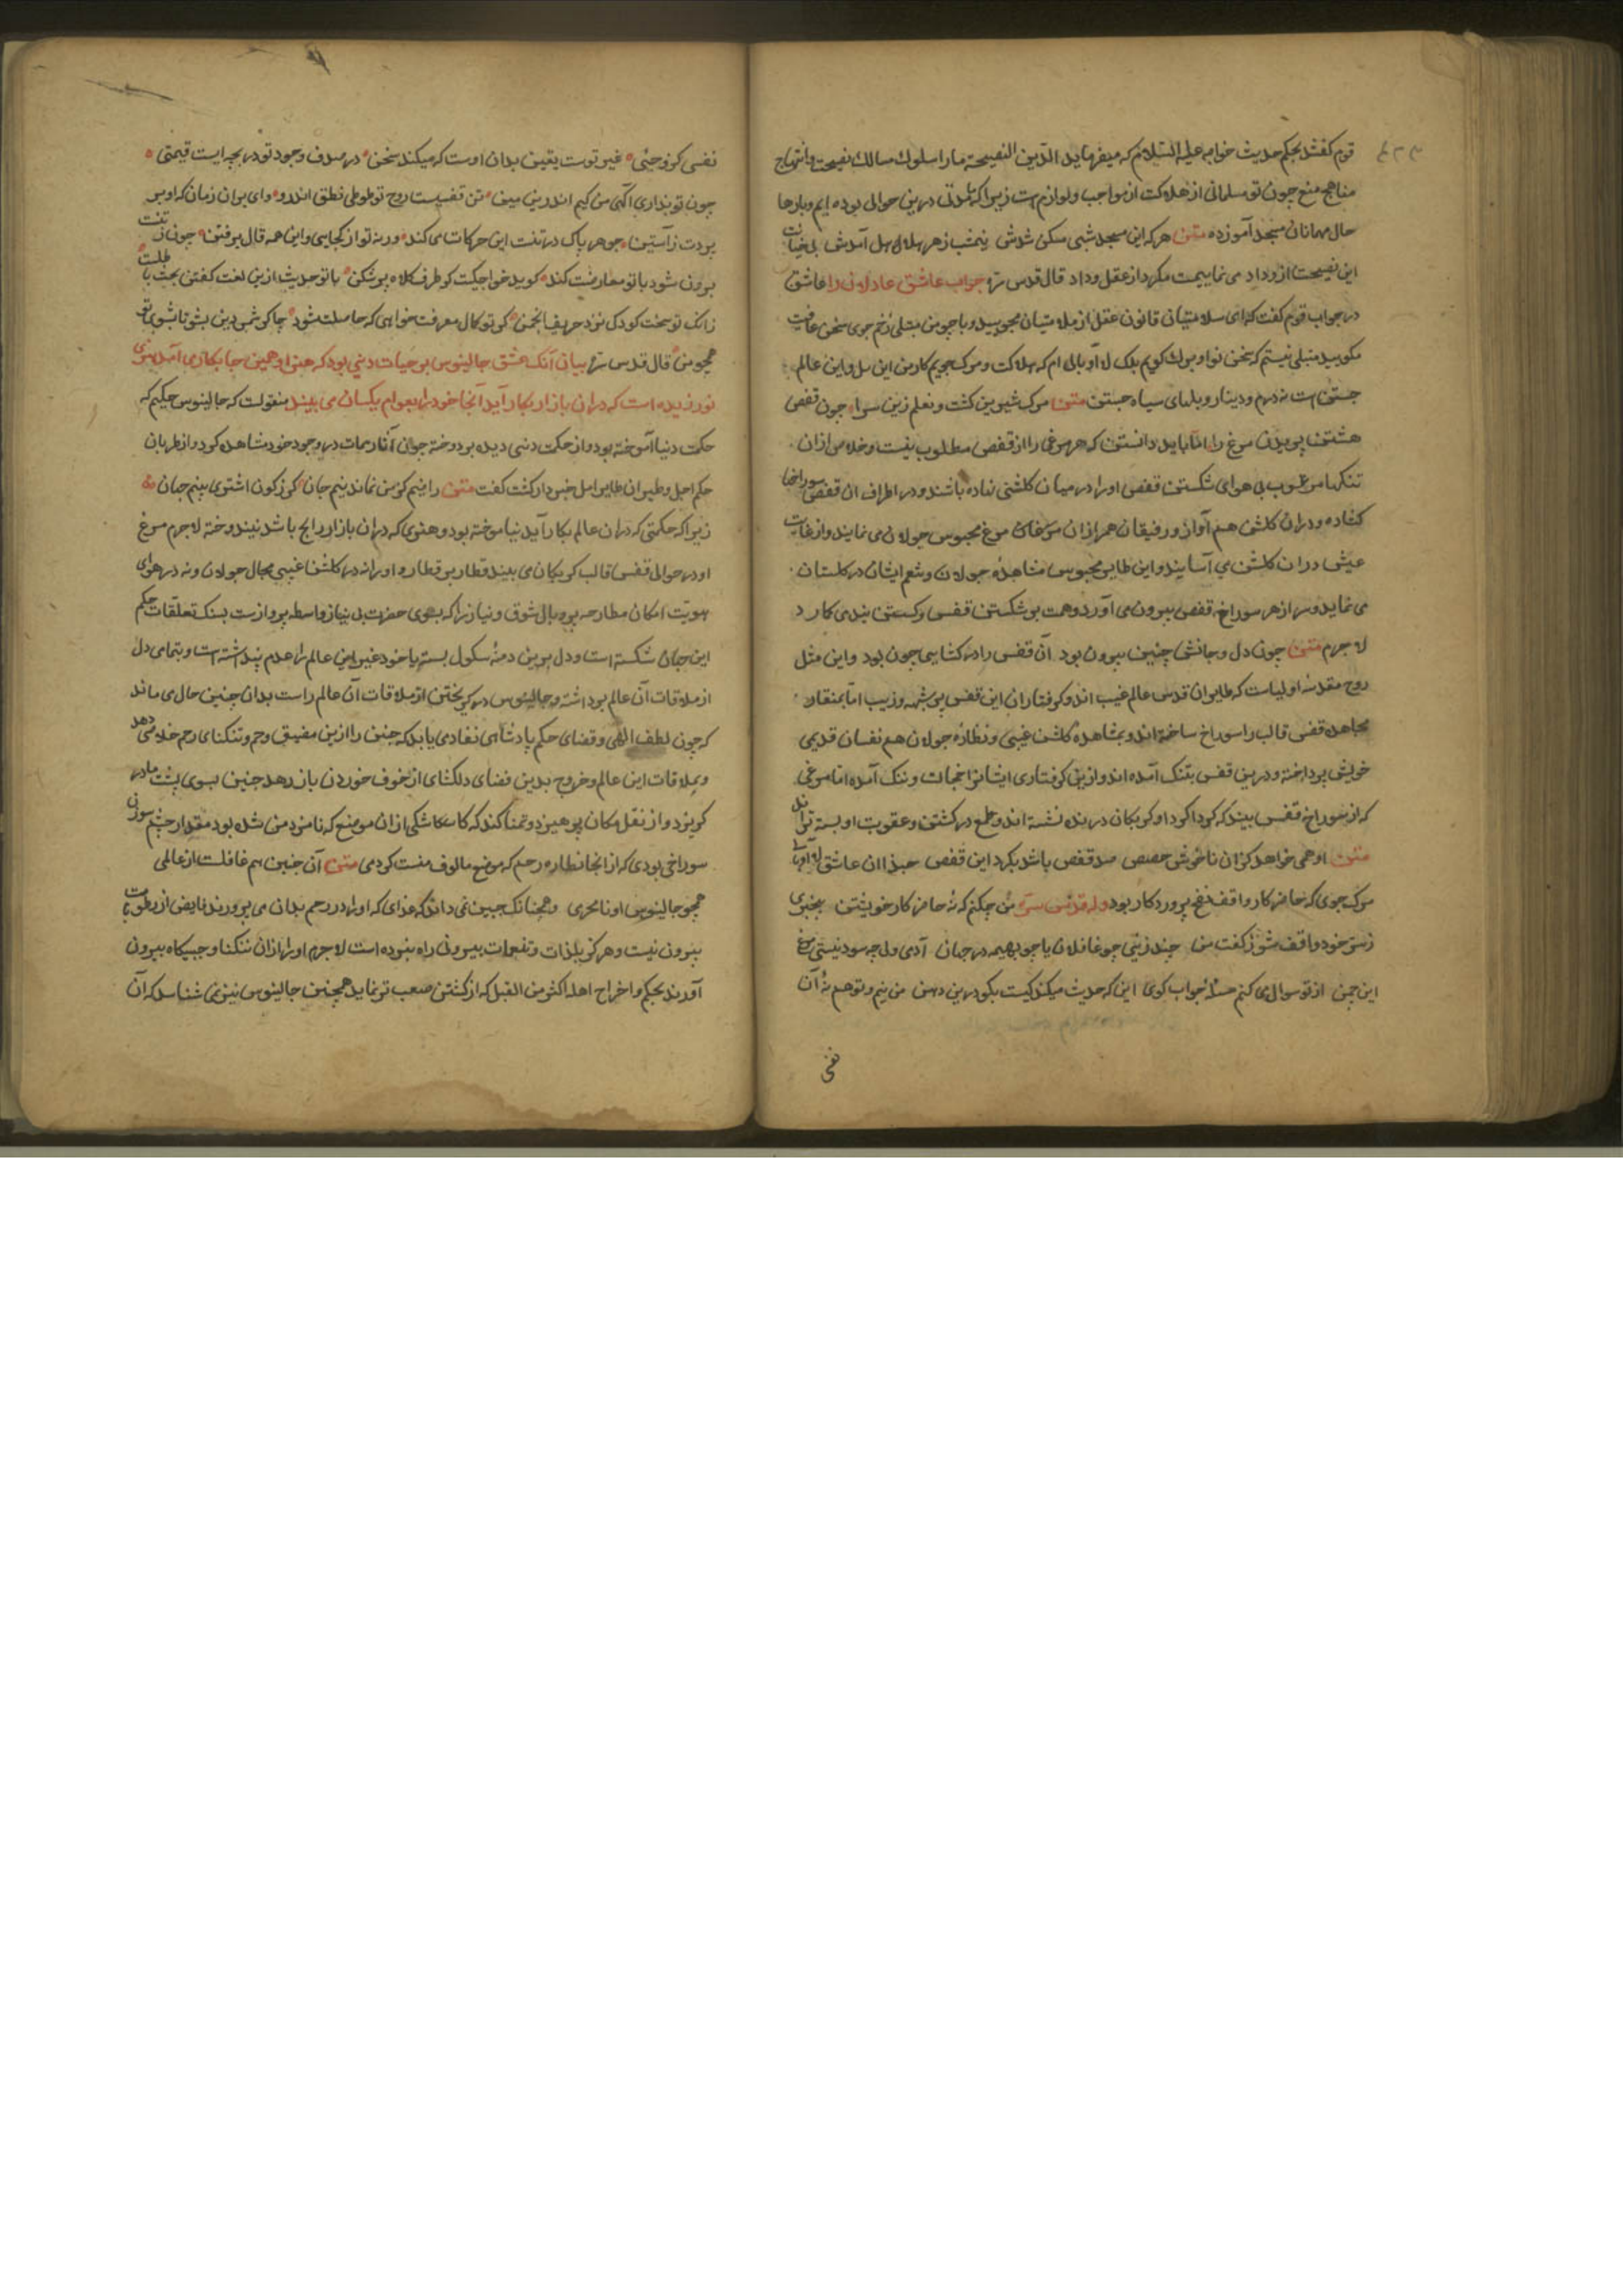 قوم گفتند بحکم حدیث خواجه علیه السلام که میفرماید الدین النصیحة ما را سلوک مسالک نصیحت و انتهاج
مناهج منع چون تو مسلمانی از هلاکت از مواجب و لوازم است زیرا که مدتی درین حوالی بوده ایم و بارها
حال مهمانان مسجد آموزده متن هر که این مسجد شبی مسکن شدش نیمشب زهر هلاهل آمدش بی خیانت
این نصیحت از وداد می نماییمت مگرد از عقل و داد قال قدس سره جواب عاشق عاذلان را عاشق
در جواب قوم گفت که ای سلامتیان قانون عقل از ملامتیان مجویید و با چو من مبتلی زخم جوی سخن عافیت
مگویید متبلی نیستم که سخن نوا و برک گویم بلک لا ابالی ام که هلاکت و مرک جویم کار من این پل و این عالم
جستن است نه درم و دینار و بلهای سیاه جستن متن مرک شیرین گشت و نقلم زین سرا چون قفص
هشتن پریدن مرغ را اما باید دانستن که هر مرغی را از قفص مطلوب نیست و خلاص از ان
تنکنا مرغوب بی هوای شکستن قفص او را در میان گلشنی نهاده باشند و در اطراف ان قفص سوراخها
گشاده و در ان گلشن هم آواز و رفیقان همراز ان مرغان مرغ محبوس جولان می نمایند و از غایت
عیش در ان گلشن می آسایند و این طایر محبوس مشاهده جولان و تنعم ایشان در گلستان
می نماید و سر از هر سوراخ قفص بیرون می آورد و همت بر شکستن قفس و گسستن بند می کارد
لاجرم متن چون دل و جانش چنین بیرون بود آن قفس را در گشایی چون بود و این مثل
روح مقدسه اولیاست که طایران قدس عالم غیب اند و گرفتاران این قفس پر شبهه و زیب اما بمنقار
مجاهده قفس قالب را سوراخ ساخته اند و بمشاهده گلشن غیبی و نظاره جولان هم نفسان قدیمی
خویش پرداخته و درین قفس بتنک آمده اند و ازین گرفتاری ایشانرا خجالت و ننک آمده اما مرغی
که از سوراخ قفس بیند که گرداگرد او گربکان در بند نشسته اند و طمع در کشتن و عقوبت او بسته تراند
متن او همی خواهد کزان ناخوش حصص صد قفص باشد بکرد این قفص حبذا ان عاشق لا ابالی
مرک جوی که حاضر کار و واقف نفخه پروردکار بود وله قدس سره من چکنم که نه حاضر کار خویشتن بیخبری
ز سر خود واقف شو ز گفت من چند زئی چو غافلان یا چو بهیمه در جهان آدمی ولی چه سود نیستی مرغ
این چمن از تو سوال می کنم مسئله جواب گوی این که حدیث میکند کیست بگو درین دهن من نیم و تو هم نه آن
نفس
نفسی کزو حیی غیر توست یقین بدان اوست که میکند سخن در صدف وجود تو در بچه ایست قیمتی
چون تو نداری آگهی من کیم اندرین میهن تن قفسیست روح تو طوطی نطق اندرو وای بران زمان که او بر
پردت ز آستین جوهر پاک در تنت این حرکات می کند ورنه تو از کجایی و این همه قال پرفتن چون ز تنت
برون شود با تو معارضت کند گوید خواجگیت کو طرف کلاه بر شکن با تو حدیث ازین لغت گفتن بحث باطلست
زانک تو سخت کودک نزد حریف انجمن گر تو کمال معرفت خواهی که حاصلت شود چاکر شمس دین بشو تا شوی تو
همچو من قال قدس سره بیان آنک عشق جالینوس بر حیات دنیی بود که هنر او همین جا بکار می آمد هنری
نورزیده است که در ان بازار بکار آید آنجا خود را بعوام یکسان می بیند منقولست که جالینوس حکیم که
حکمت دنیا آموخته بود و از حکمت دنیی دیده بر دوخته چون آثار ممات در وجود خود مشاهده کرد و از طریان
حکم اجل و طیران طایر امل خبردار گشت گفت متن راضیم کز من نماند نیم جان کز ز کون اشتری بینم جهان
زیرا که حکمتی که در ان عالم بکار آید نیاموخته بود و هنری که در ان بازار رایج باشد نیندوخته لاجرم مرغ
او در حوالی قفس قالب گربکان می بیند قطار بر قطار و او را نه در گلشن غیبی مجال جولان و نه در هوای
هویت امکان مطار چه پر و بال شوق و نیاز را که بسوی حضرت بی نیاز واسطه پروازست بسنک تعلقات حکم
این جهان شکسته است و دل برین دمنه سکول بسته یا خود غیر این عالم را عدم پنداشته است و بتمامی دل
از ملاقات آن عالم برداشته و جالینوس در گریختن از ملاقات آن عالم راست بدان چنین حال می ماند
که چون لطف الهی و قضای حکم پادشاهی نفاذی یابد که جنین را ازین مضیق رحم و تنکنای رحم خلاصی دهد
و بملاقات این عالم و خروج بدین فضای دلکشای از خوف خوردن باز رهد جنین بسوی پشت مادر
گریزد و از نقل مکان پرهیزد و تمنا کند که کاشکی از ان موضع که نامزد من شده بود مقدار چشم سوزنی
سوراخی بودی که از انجا نظاره رحم که موضع مالوف منست کردمی متن آن جنین هم غافلست از عالمی
همچو جالینوس او نامحرمی و همچنانک جنین نمی داند که غذای که او را در رحم بدان می پرورند فایض از رطوبات
بیرون نیست و هرگز بلذات و تنعمات بیرونی راه نبوده است لاجرم او را از ان تنکنا و حبسگاه بیرون
آورند بحکم و اخراج اهله اکثر من القتل که از کشتن صعب تر نماید همچنین جالینوس نیز نمی شناسد که آن